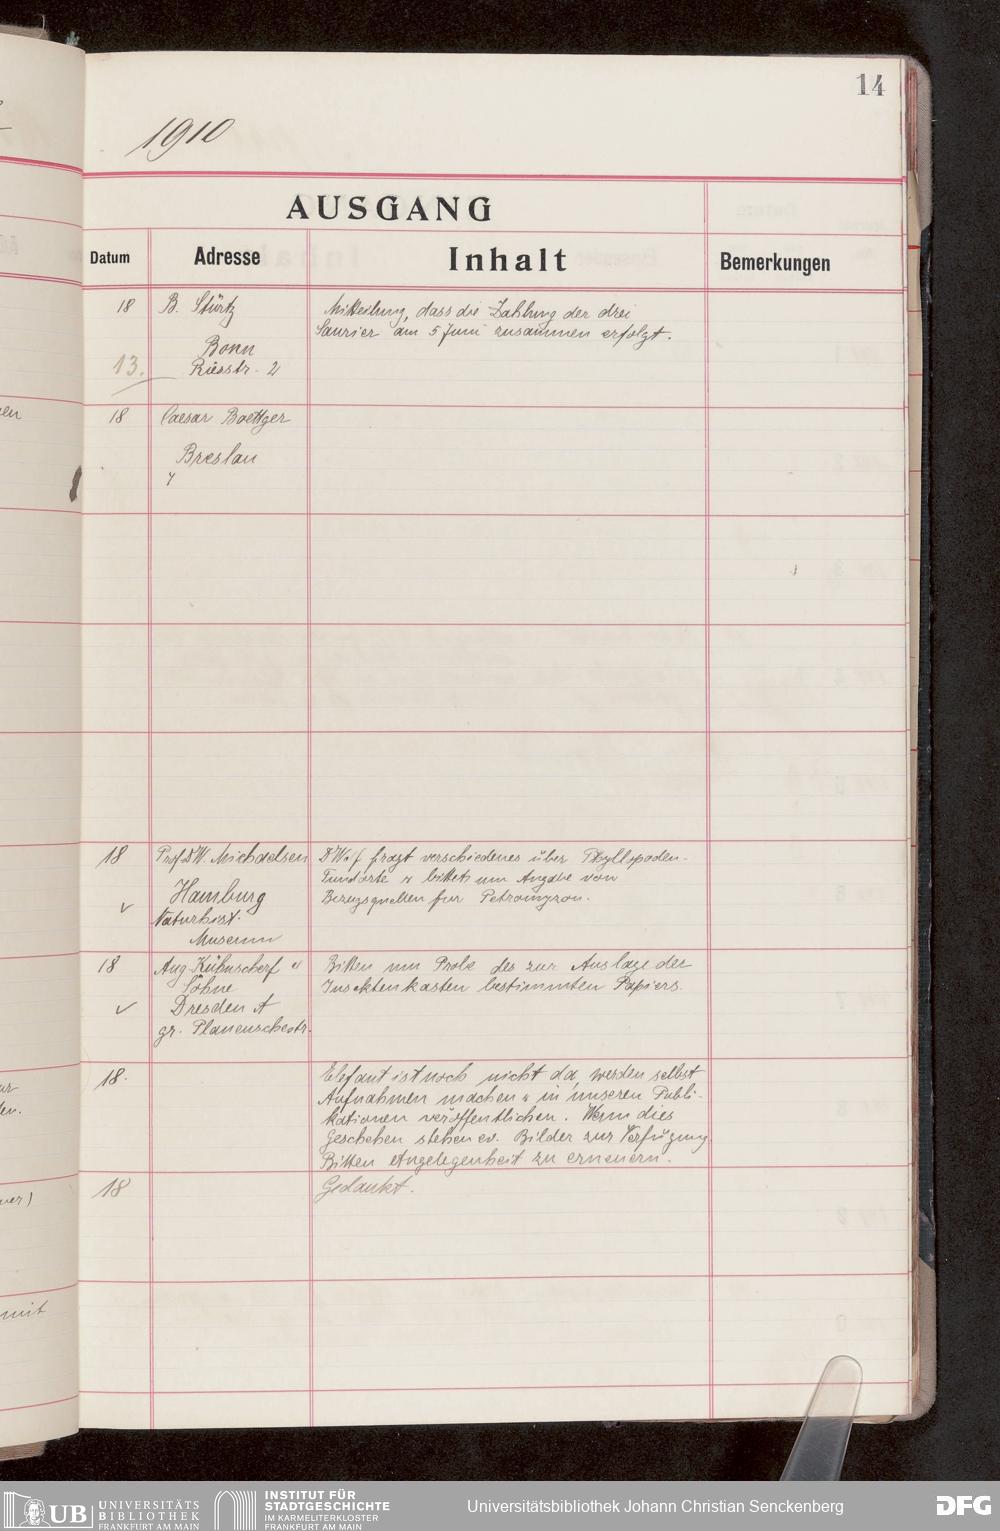 14
1910
AUSGANG
Datum Adresse Inhalt Bemerkungen
18 B. Stürtz Mitteilung, dass die Zahlung der drei
Saurier am 5 Juni zusammen erfolgt.
Bonn
13. Riesstr. 2
18 Caesar Boettger
Breslau
18 Prof. Dr W. Michaelsen Dr Wolf fragt verschiedenes über Phyllopoden-
Fundorte u bittet um Angabe von
Hamburg Bezugsquellen für Petromyzon.
Naturhist.
Museum
18 Aug. Kühnscherf u Bitten um Probe des zur Auslage der
Söhne Insektenkasten bestimmten Papiers.
Dresden A
gr. Plauenschestr.
18. Elefant ist noch nicht da, werden selbst
Aufnahmen machen u in unseren Publi-
kationen veröffentlichen. Wenn dies
geschehen stehen ev. Bilder zur Verfügung
Bitten Angelegenheit zu erneuern.
18 Gedankt.
mit
UB UNIVERSITÄTS
BIBLIOTHEK
FRANKFURT AM MAIN
INSTITUT FÜR
STADTGESCHICHTE
IM KARMELITERKLOSTER
FRANKFURT AM MAIN
Universitätsbibliothek Johann Christian Senckenberg
DFG